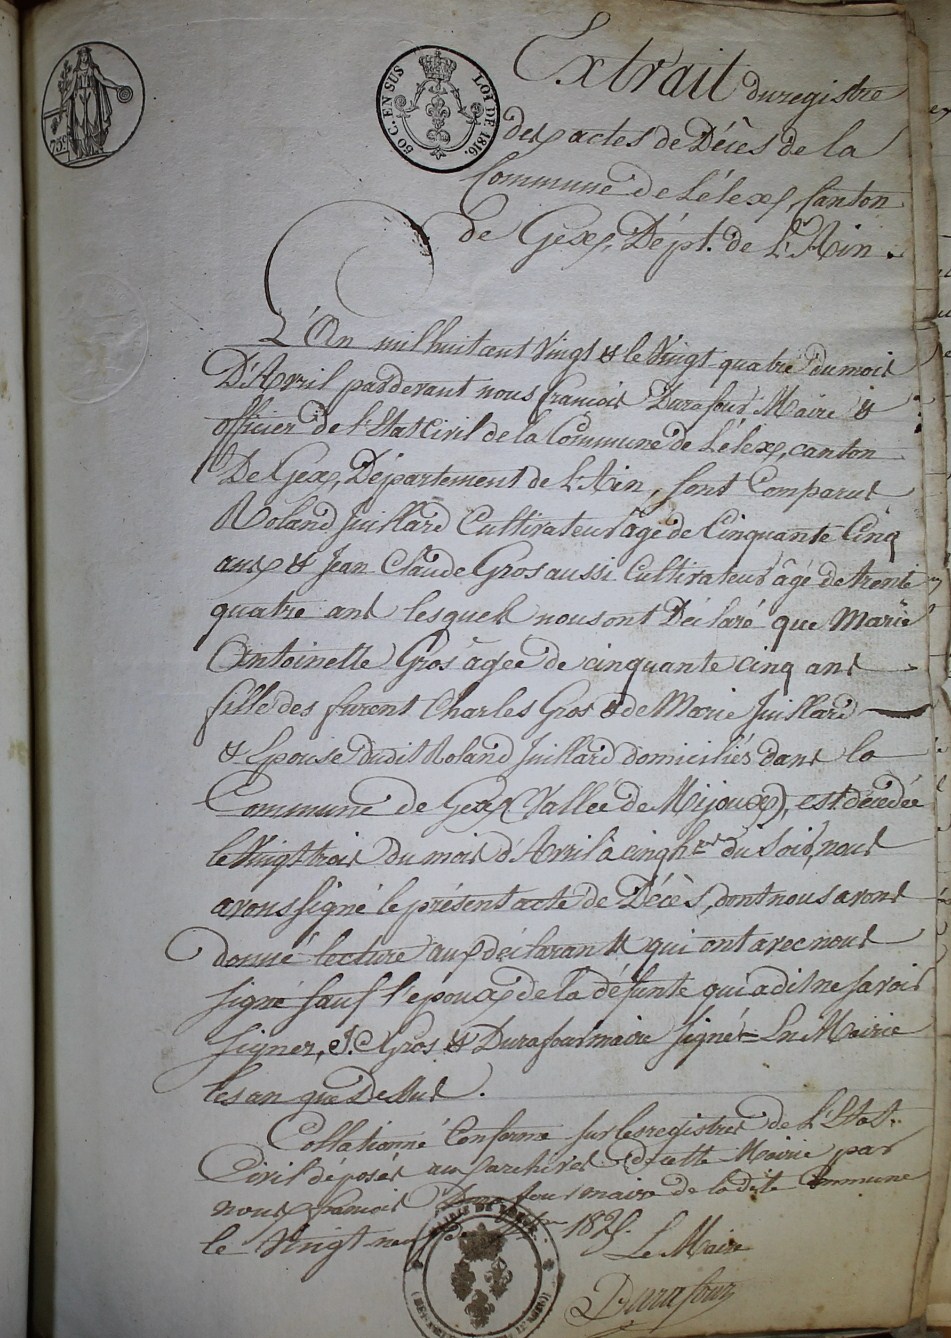 75c
50 C. EN SUS LOI DE 1816.
Extrait du registre
des actes de Décès de la
Commune de Lélex, Canton
de Gex, Dépt. de L'Ain.
L'An mil huit cent Vingt & le Vingt quatre du mois
D'Avril pardevant nous francois Durafour, Maire &
officier de l'Etat Civil de la Commune de Lélex, canton
De Gex, Département de L'Ain, sont Comparus
Roland Juillard Cultivateur âgé de Cinquante Cinq
ans & Jean Claude Gros aussi Cultivateur âgé de trente
quatre ans lesquels nous ont Déclaré que Marie
Antoinette Gros âgée de cinquante cinq ans
fille des furent Charles Gros & de Marie Juillard
& Epouse dudit Roland Juillard domiciliés dans la
Commune de Gex (Vallée de Mijoux), est décédée
le Vingt trois du mois d'Avril à cinq hres du soir, nous
avons signé le présent acte de Décès, dont nous avons
donné lecture aux déclarants qui ont avec nous
signé sauf l'époux de la défunte qui a dit ne savoir
signer, J. C. Gros & Durafour maire signés En Mairie
les an que Dessus.
Collationné Conforme sur les registres de L'Etat
Civil déposés aux archives de cette Mairie par
nous francois Durafour maire de la dite Commune
le Vingt 182
Le Maire
Durafour
MAIRIE DE